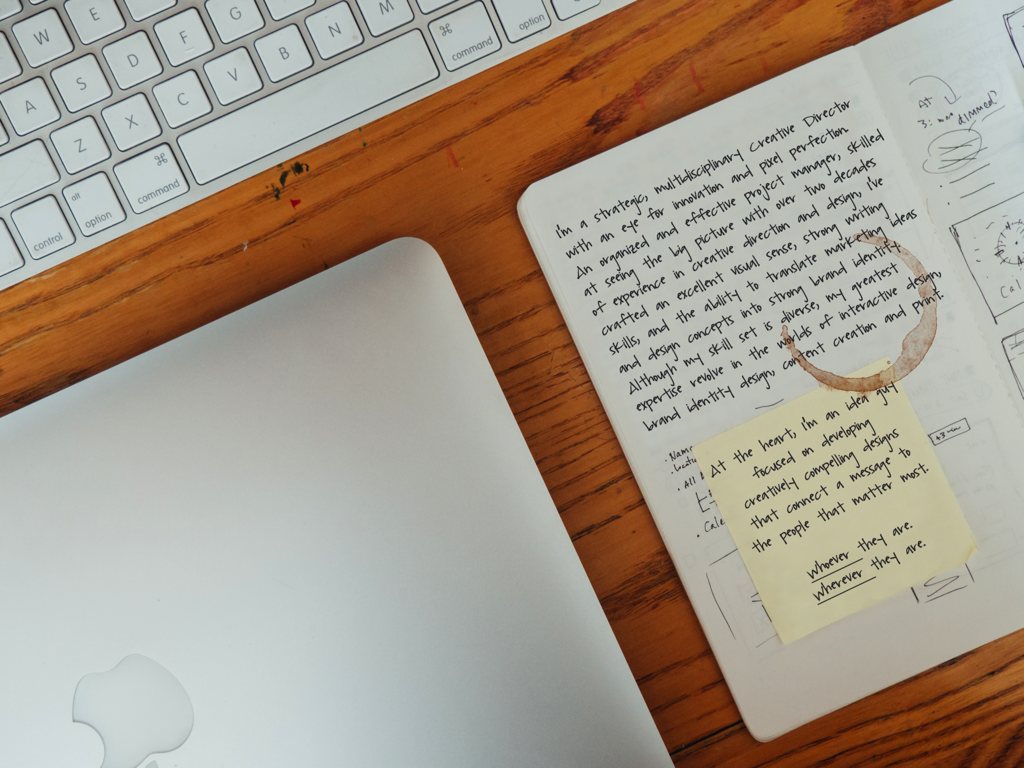 W E
option
F G
B N M
⌘
command
option
A S D
C V
Z X
⌘
command
alt
option
control
I'm a strategic, multidisciplinary Creative Director
with an eye for innovation and pixel perfection.
An organized and effective project manager, skilled
at seeing the big picture with over two decades
of experience in creative direction and design, I've
crafted an excellent visual sense, strong writing
skills, and the ability to translate marketing ideas
and design concepts into strong brand identity.
Although my skill set is diverse, my greatest
expertise revolve in the worlds of interactive design,
brand identity design, content creation and print.
At the heart, I'm an idea guy
focused on developing
creatively compelling designs
that connect a message to
the people that matter most.
whoever they are.
wherever they are.
• Name
• All
• Cale
At
dimmed?
Cal